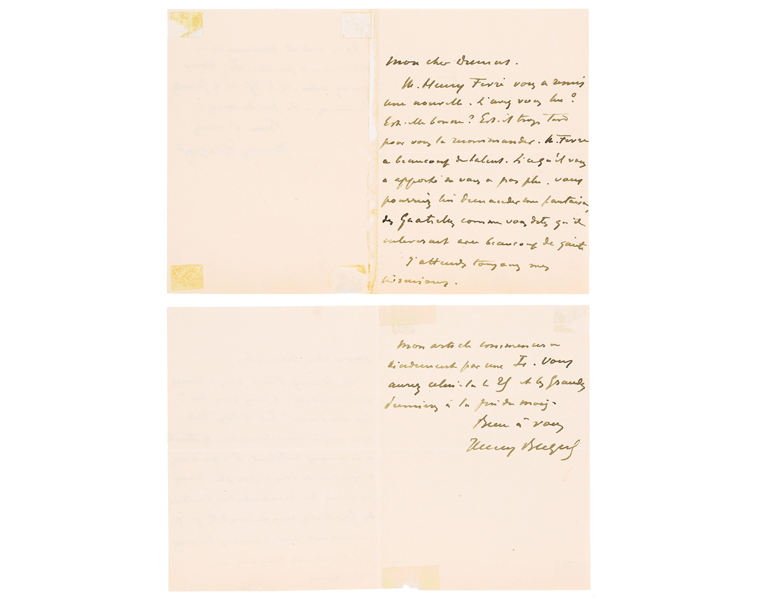 Mon cher Dumas.
M. Henry Fèvre vous a remis
une nouvelle. L'avez vous lue ?
Est-elle bonne ? Est-il trop tard
pour vous la recommander. M. Fèvre
a beaucoup de talent. Si ce qu'il vous
a apporté ne vous a pas plu, vous
pourriez lui demander une fantaisie
des comme vous dites qu'il
avec beaucoup de gaité
J'attends toujours mes

Mon article commencera
par une I. Vous
aurez celui-là le 25 et les Grands
à la fin du mois.
Bien à vous
Henry